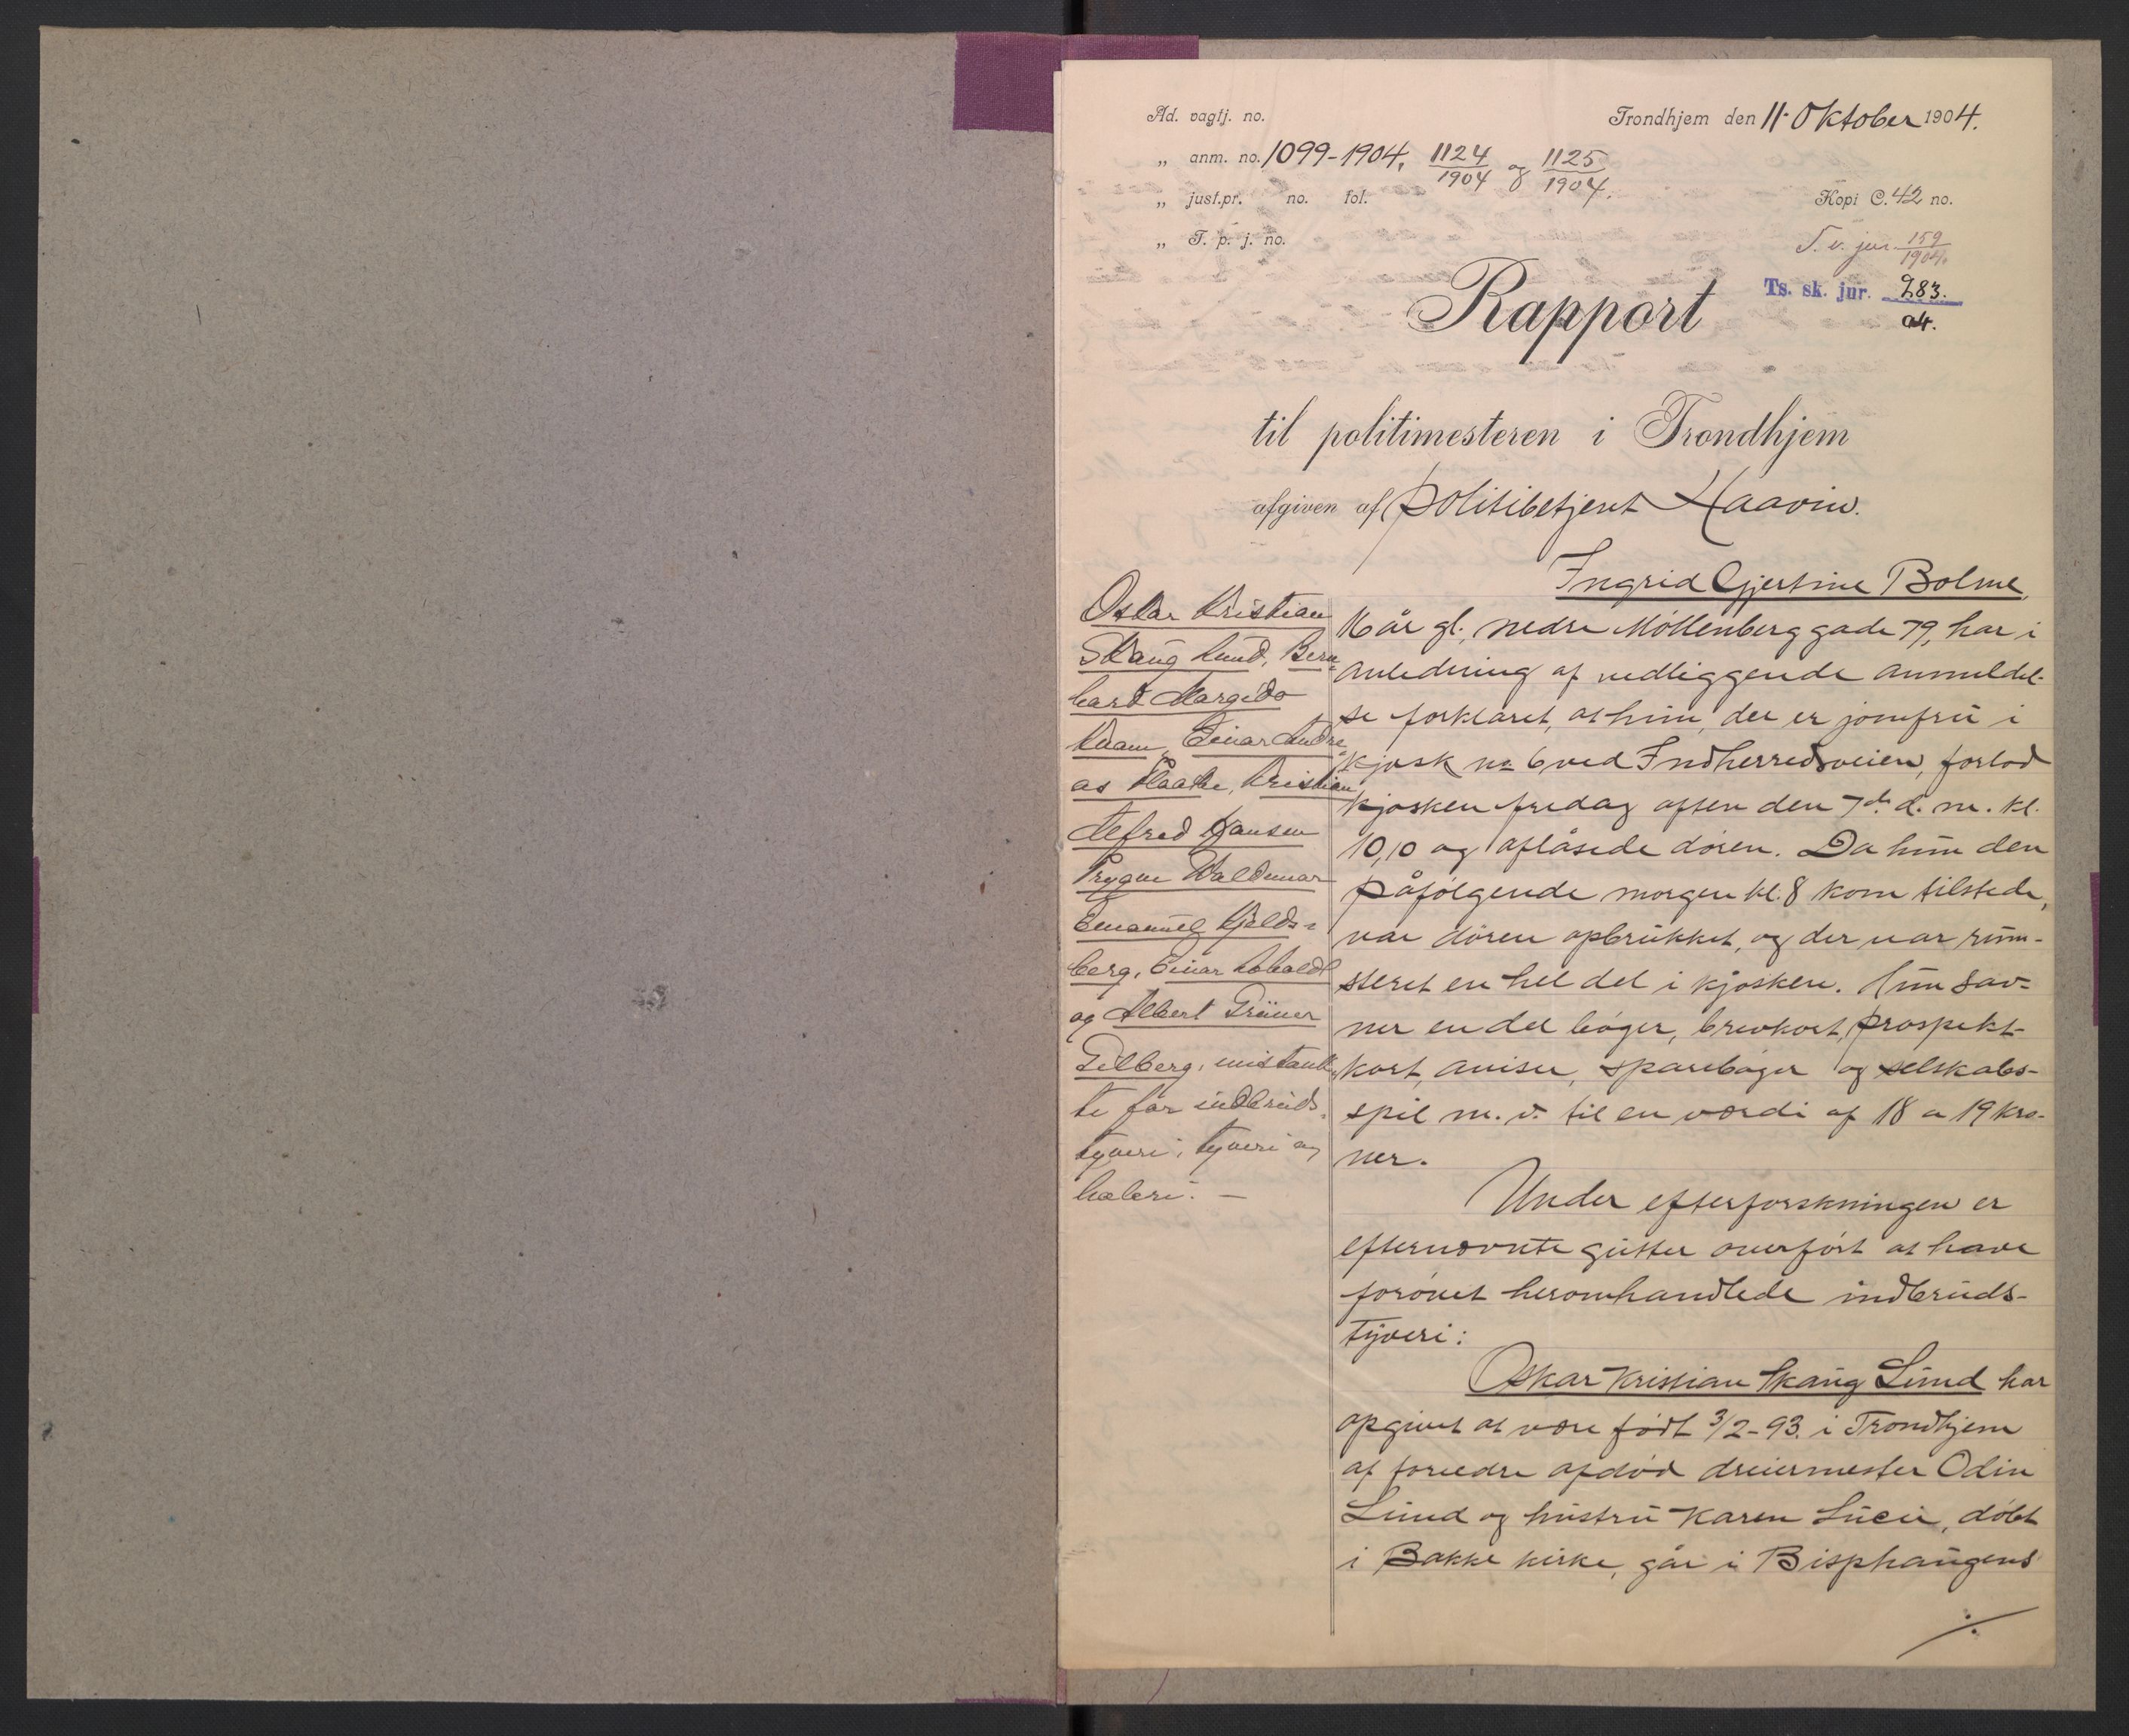 Ad. vagtj. no.
Trondhjem den 11. Oktober 1904.
„ anm. no. 1099-1904, 1124/1904 og 1125/1904.
„ just.pr. no. fol.
Kopi C. 42 no.
„ T. p. j. no.
T. v. jur. 159/1904.
Ts. sk. jur. 283.
04.
Rapport
til politimesteren i Trondhjem
afgiven af politibetjent Haavin.
Oskar Kristian
Skaug Lund, Bern-
hard Margido
Kvam, Einar Andre-
as Flaathe, Kristian
Alfred Hansen
Trygve Waldemar
Emanuel Kjelds-
berg, Einar
og Albert Grüner
Gilberg, mistænk-
te for indbruds-
tyveri, tyveri og
hæleri. —
Ingrid Gjertine Bolme,
16 år gl., nedre Møllenberg gade 79, har i
anledning af vedliggende anmeldel-
se forklaret, at hun, der er jomfru i
kjosk no 6 ved Indherredsveien, forlod
kjosken fredag aften den 7de d. m. kl.
10,10 og aflåsede døren. Da hun den
påfølgende morgen kl. 8 kom tilstede,
var døren opbrukket, og der var rum-
steret en hel del i kjosken. Hun sav-
ner en del bøger, brevkort, prospekt-
kort, aviser, sparebøger og selskabs-
spil m. v. til en værdi af 18 a 19 kro-
ner.
Under efterforskningen er
efternævnte gutter overført at have
forøvet heromhandlede indbruds-
tyveri:
Oskar Kristian Skaug Lund har
opgivet at være født 3/2-93. i Trondhjem
af forældre afdød dreiermester Odin
Lund og hustru Karen Lucie, døbt
i Bakke kirke, går i Bisphaugens
./.